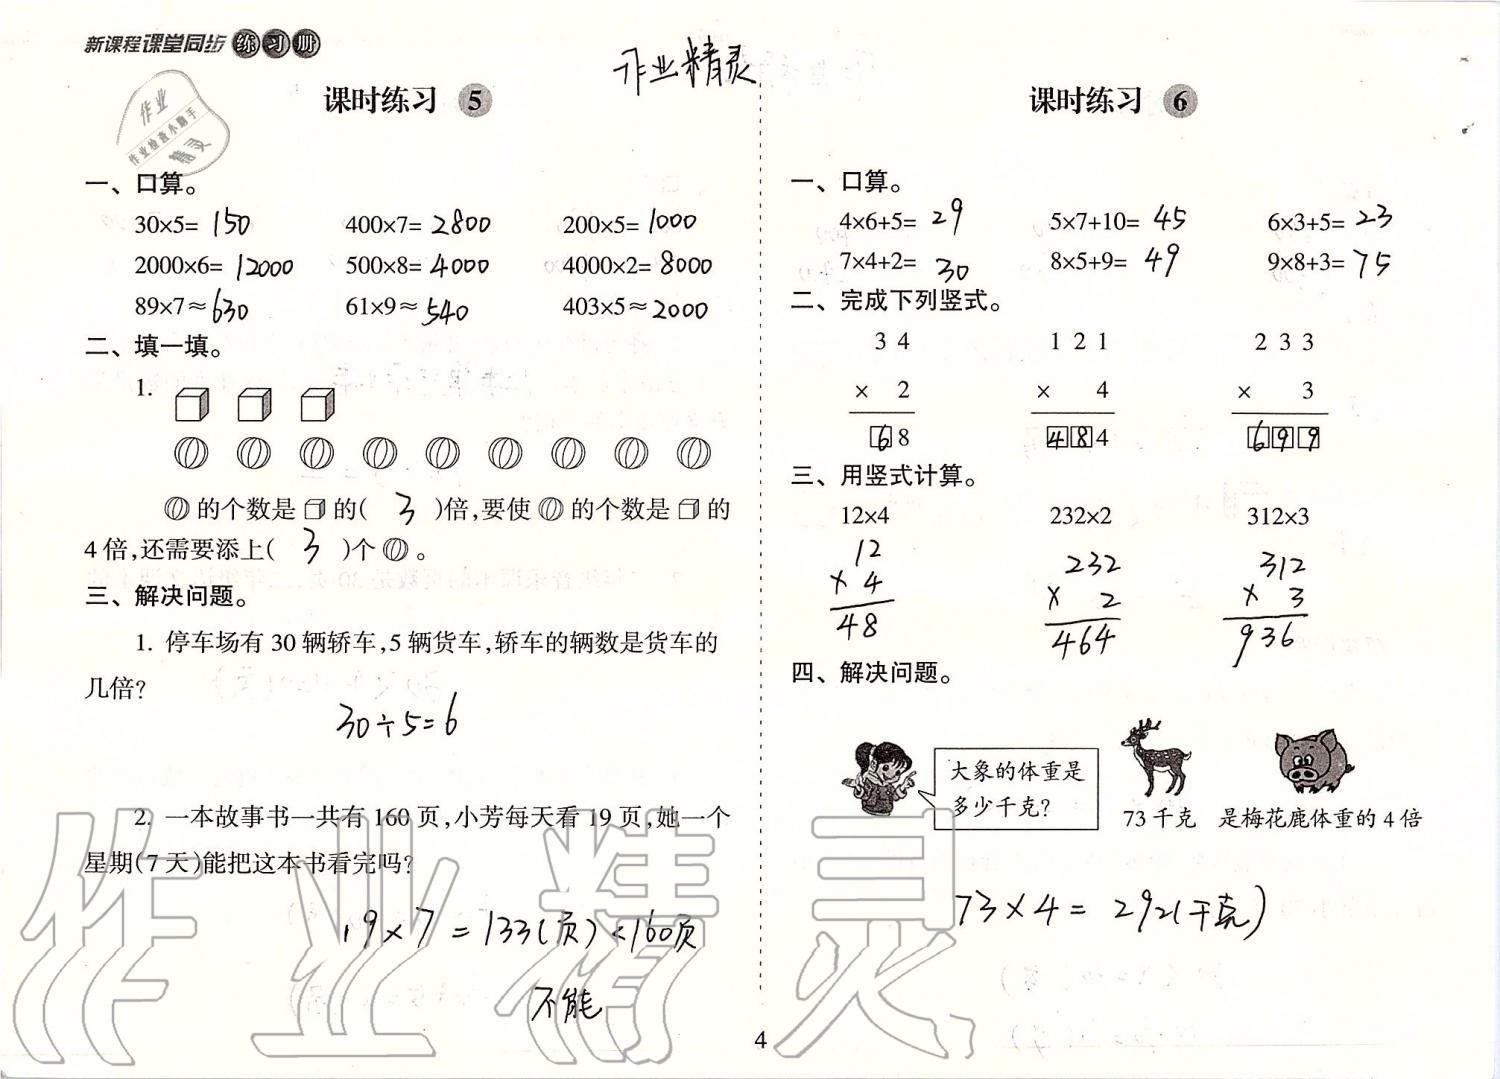 新课程课堂同步练习册
作业精灵
作业
作业检查小助手
精灵
课时练习 5
一、口算。
30×5= 150 400×7= 2800 200×5= 1000
2000×6= 12000 500×8= 4000 4000×2= 8000
89×7≈ 630 61×9≈ 540 403×5≈ 2000
二、填一填。
1.
的个数是 的( 3 )倍,要使 的个数是 的
4倍,还需要添上( 3 )个 。
三、解决问题。
1. 停车场有 30 辆轿车,5 辆货车,轿车的辆数是货车的
几倍?
30÷5=6
2. 一本故事书一共有 160 页,小芳每天看 19 页,她一个
星期(7 天)能把这本书看完吗?
19×7=133(页)<160页
不能
课时练习 6
一、口算。
4×6+5= 29 5×7+10= 45 6×3+5= 23
7×4+2= 30 8×5+9= 49 9×8+3= 75
二、完成下列竖式。
34 121 233
× 2 × 4 × 3
68 484 699
三、用竖式计算。
12×4 232×2 312×3
12 232 312
× 4 × 2 × 3
48 464 936
四、解决问题。
大象的体重是
多少千克?
73 千克 是梅花鹿体重的 4 倍
73×4=292(千克)
4
作业精灵